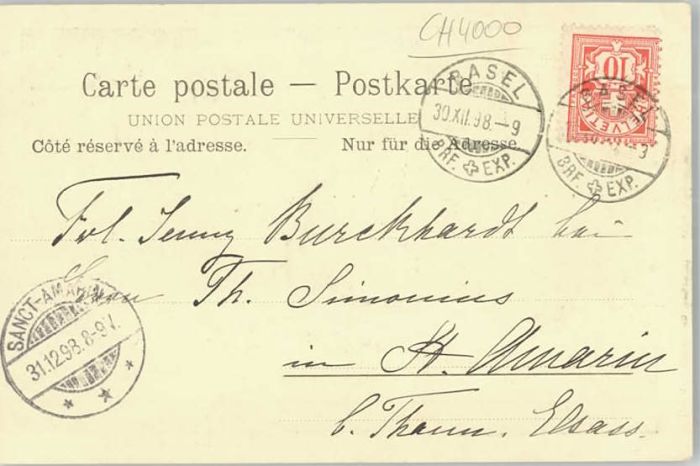 CH4000
Carte postale — Postkarte
UNION POSTALE UNIVERSELLE
Côté réservé à l'adresse. Nur für die Adresse.
BASEL
30.XII.98.-9
BRF. EXP.
10
HELVETIA
BASEL
30.XII.98.-9
BRF. EXP.
Frl. Jenny Burckhardt bei
Herrn Th. Simonius
in St. Amarin
b. Thann. Elsass.
SANCT-AMARIN
31.12.98.8-9V.